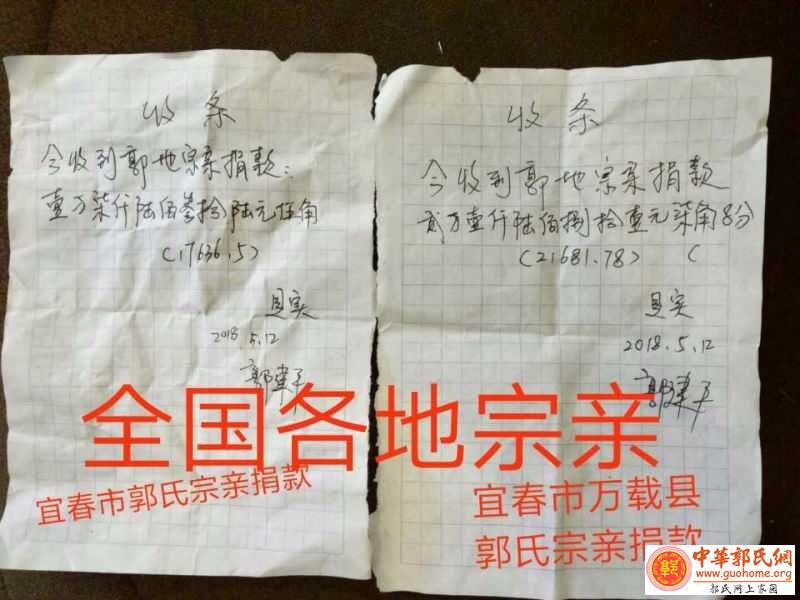 收条
今收到郭地宗亲捐款：
壹万柒仟陆佰叁拾陆元伍角
(17636.5)
具实
2018.5.12
郭建平
收条
今收到郭地宗亲捐款
贰万壹仟陆佰捌拾壹元柒角8分
(21681.78)
具实
2018.5.12
郭建平
全国各地宗亲
宜春市郭氏宗亲捐款
宜春市万载县
郭氏宗亲捐款
中華郭氏網
www.guohome.org
郭氏网上家园